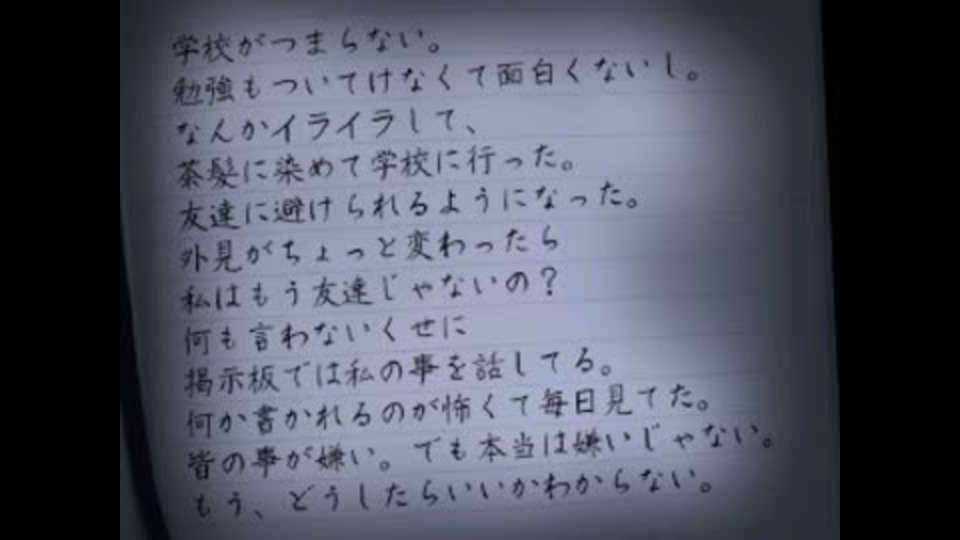 学校がつまらない。
勉強もついてけなくて面白くないし。
なんかイライラして、
茶髪に染めて学校に行った。
友達に避けられるようになった。
外見がちょっと変わったら
私はもう友達じゃないの？
何も言わないくせに
掲示板では私の事を話してる。
何か書かれるのが怖くて毎日見てた。
皆の事が嫌い。でも本当は嫌いじゃない。
もう、どうしたらいいかわからない。